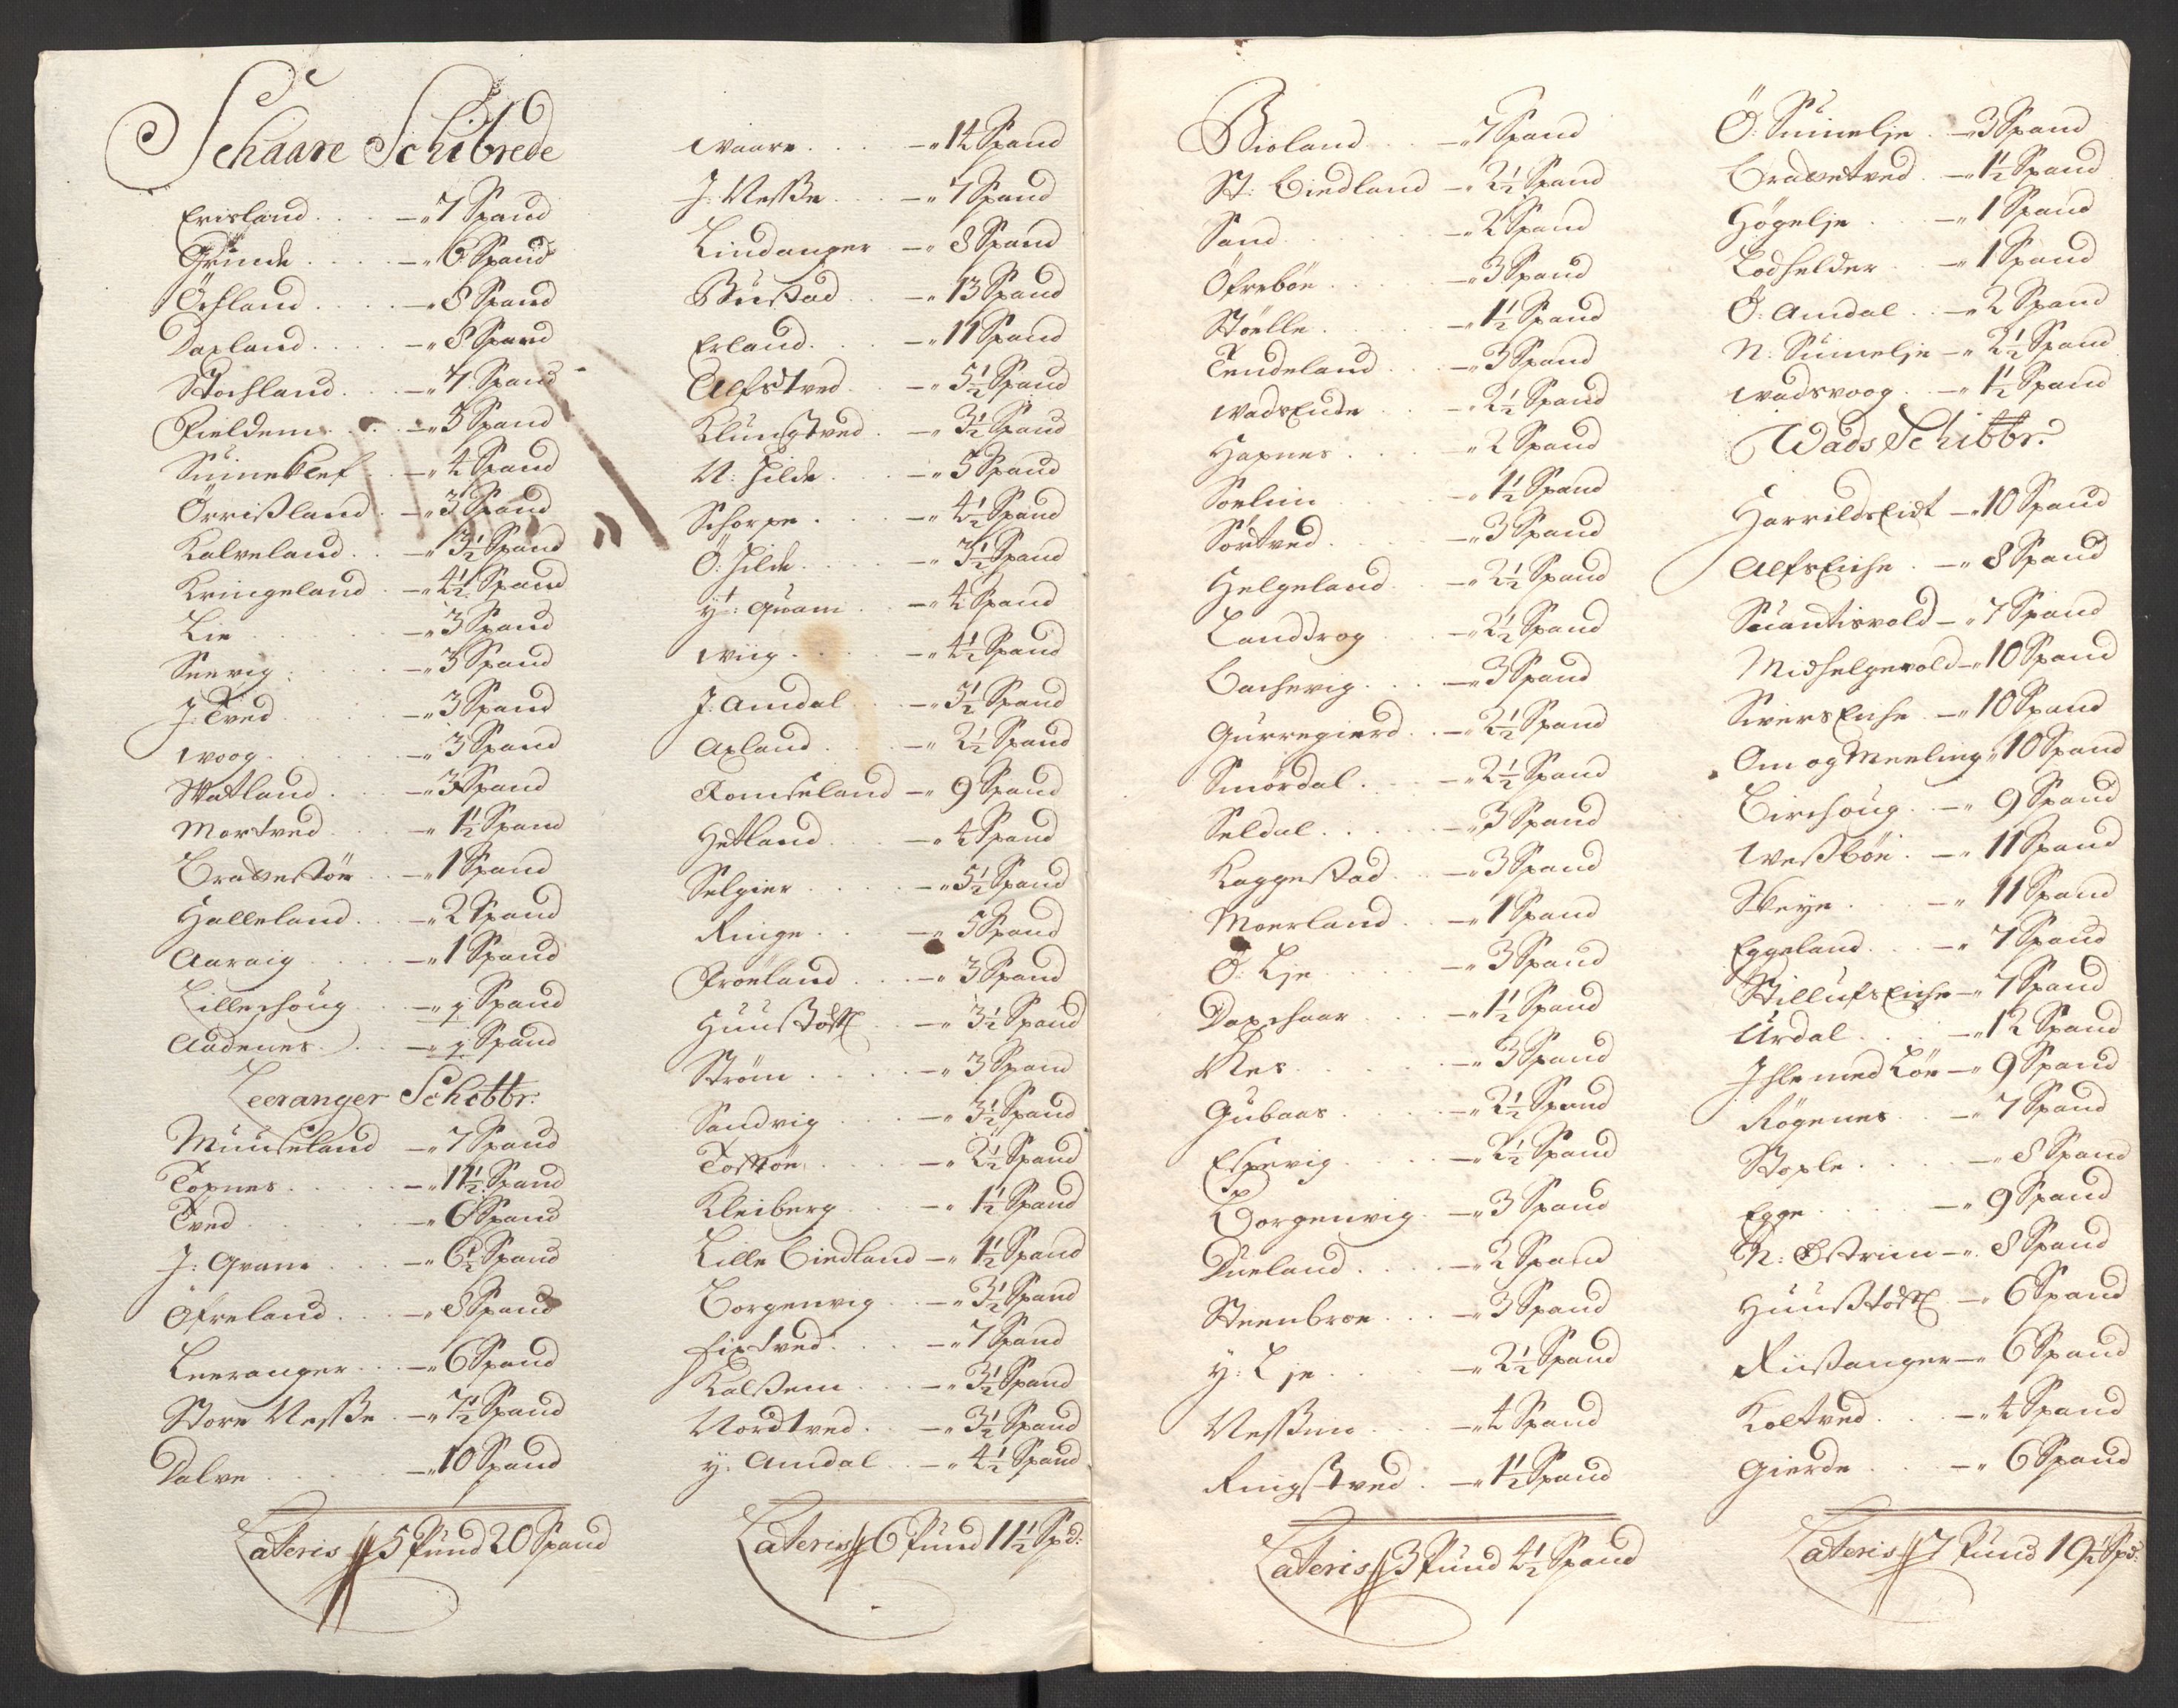 Schaare Schibrede
Erisland . . . —" 7 Spand
Grinde . . . . —" 6 Spand
Öchland . . . —" 8 Spand
Dapland . . . —" 8 Spand
Stochland . . —" 7 Spand
Fieldem . . . —" 3 Spand
Suineklef . . —" 4 Spand
Örrisland . —" 3 Spand
Kalveland . . —" 3½ Spand
Kringeland . —" 4½ Spand
Lie . . . . . —" 3 Spand
Seevig . . . —" 3 Spand
J: Tved . . . —" 3 Spand
Woog . . . . —" 3 Spand
Watland . . . —" 3 Spand
Mortved . . —" 1½ Spand
Bradestöe . . —" 1 Spand
Halleland . . —" 2 Spand
Aaraig . . . —" 1 Spand
Lillechoug . . —" ½ Spand
Aadenes . . —" ½ Spand
Leeranger Schibbr:
Muuseland —" 7 Spand
Topnes . . . —" 11½ Spand
Tved . . . . —" 6 Spand
J: Qvam . . . —" 6½ Spand
Öfreland . . . —" 8 Spand
Leeranger . . —" 6 Spand
Store Nesse . —" 7½ Spand
Dalve . . . . —" 10 Spand
Lateris 5 Pund 20 Spand
Waare . . . —" 14 Spand
J: Nesse . . . —" 7 Spand
Lindanger —" 8 Spand
Bustad . . —" 13 Spand
Erland . . . —" 11 Spand
Alfstved . . —" 5½ Spand
Klungtved . —" 3½ Spand
N: Hilde . . . —" 5 Spand
Schorpe . . . —" 4½ Spand
Ö: Hilde . . . . —" 3½ Spand
yt: Quam . . —" 4 Spand
Wiig . . . . —" 4½ Spand
J: Amdal . . —" 5½ Spand
Axland . . . —" 2½ Spand
Romseland —" 9 Spand
Hetland . . . —" 4 Spand
Selgier . . . . —" 5½ Spand
Ringe . . . —" 5 Spand
Froeland . . . —" 3 Spand
Huustoft . . —" 3½ Spand
Ström . . . . —" 3 Spand
Sandvig . . —" 3½ Spand
Toskön . . . —" 2½ Spand
Kleiberg . . . —" 1½ Spand
Lille Biedland —" 1½ Spand
Borgenvig . . —" 3½ Spand
Hixtved . . . —" 7 Spand
Kalhem . . . —" 3½ Spand
Nordtved . . —" 3½ Spand
y: Amdal . . —" 4½ Spand
Lateris 6 Pund 11½ Spd:
Bioland . . —" 7 Spand
St: Biedland —" 2½ Spand
Sand . . . . . —" 2 Spand
Öfrebön . . . —" 3 Spand
Stölle . . . . —" 1½ Spand
Tendeland . . —" 3 Spand
WadsEnde . . —" 2½ Spand
Hapnes . . . —" 2 Spand
Soelim —" 1½ Spand
Sörtved . . . —" 3 Spand
Helgeland . . —" 2½ Spand
Landdrog . . —" 2½ Spand
Bachevig . . . —" 3 Spand
Gurregierd . —" 2½ Spand
Smördal . . . —" 2½ Spand
Seldal . . . . —" 3 Spand
Kaggestad . . —" 3 Spand
Moerland . . —" 1 Spand
Ö: Lje . . . . —" 3 Spand
Dapschaar . . —" 1½ Spand
Nes . . . . . —" 3 Spand
Gubaas . . . —" 2½ Spand
Espevig . . . —" 2½ Spand
Borgenvig . —" 3 Spand
Dueland . . . —" 2 Spand
Steenbroe . . —" 3 Spand
y: Lje . . . . —" 2½ Spand
Nessim . . . —" 4 Spand
Ringstved . . —" 1½ Spand
Lateris 3 Pund 4½ Spand
Ö: Suinelje . —" 3 Spand
Bradetved . —" 1½ Spand
Högelje . . . —" 1 Spand
Lodhelder . —" 1 Spand
Ö: Amdal . . —" 2 Spand
N: Suinelje —" 2½ Spand
Wadswoog . —" 1½ Spand
Wads Schibbr:
HarrildsEidt —" 10 Spand
AlfsEiche . —" 8 Spand
Suantisvold —" 7 Spand
Midhelgevold —" 10 Spand
SiversEiche . —" 10 Spand
Om og Meeling " 10 Spand
Birchoug . . —" 9 Spand
Westbön . —" 11 Spand
Steye . . . . —" 11 Spand
Eggeland . . —" 7 Spand
StillufsEiche —" 7 Spand
Urdal . . . —" 12 Spand
Ihle med Lön —" 9 Spand
Rögenes . . —" 7 Spand
Stople . . . . —" 8 Spand
Egge . . . . —" 9 Spand
N: Østrim —" 8 Spand
Huustoft . —" 6 Spand
Riisanger —" 6 Spand
Koltved . . . —" 4 Spand
Gierde . . . —" 6 Spand
Lateris 7 Pund 19½ Spd: